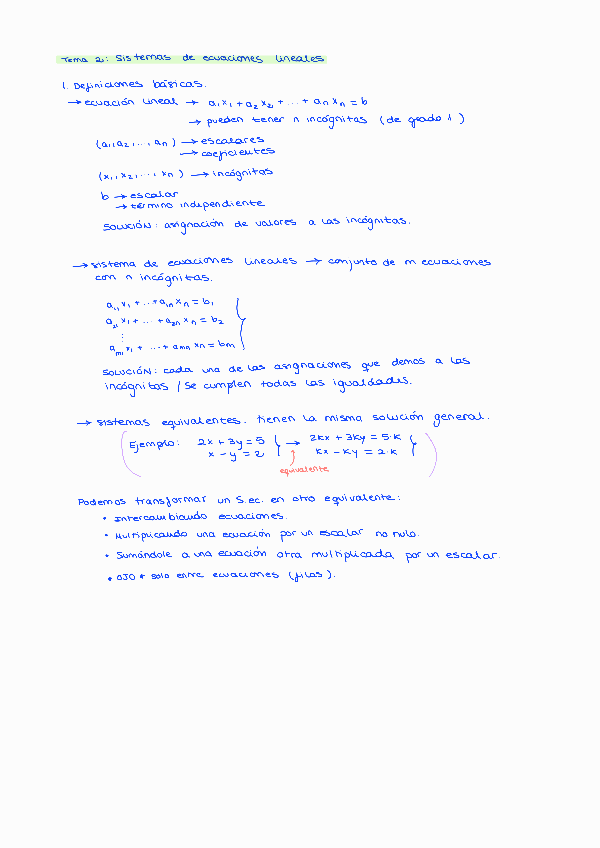 Tema 2: Sistemas de ecuaciones lineales
1. Definiciones básicas.
→ ecuación lineal → a₁x₁ + a₂x₂ + ... + aₙxₙ = b
→ pueden tener n incógnitas (de grado 1)
(a₁, a₂, ..., aₙ) → escalares
→ coeficientes
(x₁, x₂, ..., xₙ) → incógnitas
b → escalar
→ término independiente
SOLUCIÓN: asignación de valores a las incógnitas.
→ sistema de ecuaciones lineales → conjunto de m ecuaciones
con n incógnitas.
a₁₁x₁ + ... + a₁ₙxₙ = b₁
a₂₁x₁ + ... + a₂ₙxₙ = b₂
⋮
aₘ₁x₁ + ... + aₘₙxₙ = bₘ
SOLUCIÓN: cada una de las asignaciones que demos a las
incógnitas / se cumplen todas las igualdades.
→ sistemas equivalentes. tienen la misma solución general.
Ejemplo: 2x + 3y = 5 → 2kx + 3ky = 5·k
x - y = 2 kx - ky = 2·k
equivalente
Podemos transformar un S.ec. en otro equivalente:
• Intercambiando ecuaciones.
• Multiplicando una ecuación por un escalar no nulo.
• Sumándole a una ecuación otra multiplicada por un escalar.
* OJO * solo entre ecuaciones (filas).